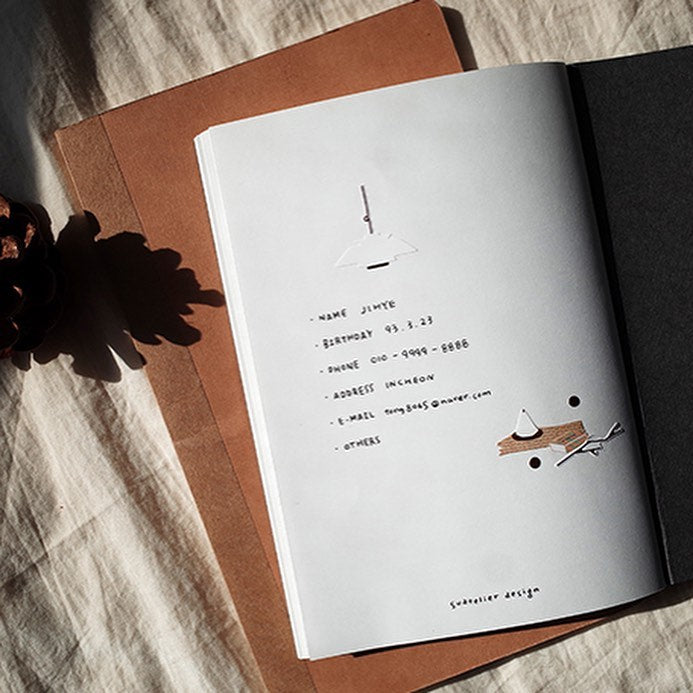 - NAME JIHYE
- BIRTHDAY 93.3.23
- PHONE 010 - 9999 - 8888
- ADDRESS INCHEON
- E-MAIL tong8065@naver.com
- OTHERS
suatelier design